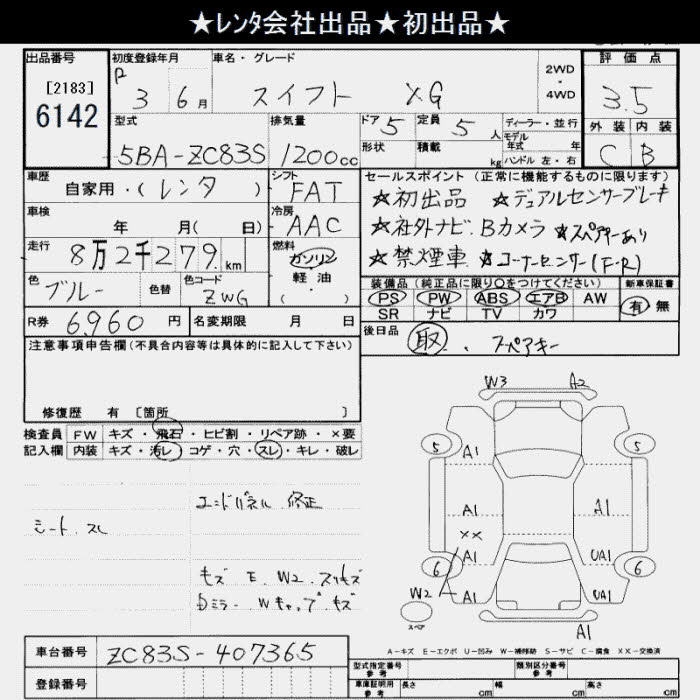 ★ﾚﾝﾀ会社出品★初出品★
出品番号 初度登録年月 車名・グレード 2WD・4WD 評価点
[2183]
6142
R 3 6月 スイフト XG 3.5
型式 排気量 ドア 5 定員 5人 ディーラー・並行 外装 内装
5BA-ZC83S 1200cc 形状 積載 kg モデル年式 年 ハンドル 左・右 C B
車歴 自家用・(レンタ) シフト FAT
セールスポイント(正常に機能するものに限ります)
☆初出品 ☆デュアルセンサーブレーキ
車検 年 月(日) 冷房 AAC
☆社外ナビ.Bカメラ ☆スペアキーあり
走行 8万2千279km 燃料 ガソリン 軽油 ( ・ )
☆禁煙車 ☆コーナーセンサー(F・R)
色 ブルー 色替 色コード ZWG
装備品(純正品に限り○をつけてください) 新車保証書
PS PW ABS エアB AW 有・無
SR ナビ TV カワ
R券 6,960円 名変期限 月 日
後日品 取 . スペアキー
注意事項申告欄(不具合内容等は具体的に記入して下さい)
修復歴 有 [箇所 ]
検査員記入欄 FW キズ・飛石・ヒビ割・リペア跡・×要
内装 キズ・汚レ・コゲ・穴・スレ・キレ・破レ
エンドパネル 修正
シート スレ
キズ E W2 . スリキズ
Dミラー . Wキャップ キズ
W3 A2
5 A1 5
A1 A1
××
A1 UA1
6 6
W2 A1 UA1
スペア
A1
A－キズ E－エクボ U－凹み W－補修跡 S－サビ C－腐食 XX－交換済
車台番号 ZC83S-407365
型式指定番号 参考 類別区分番号 参考
登録番号 車庫証明用 参考 長さ cm 幅 cm 高さ cm